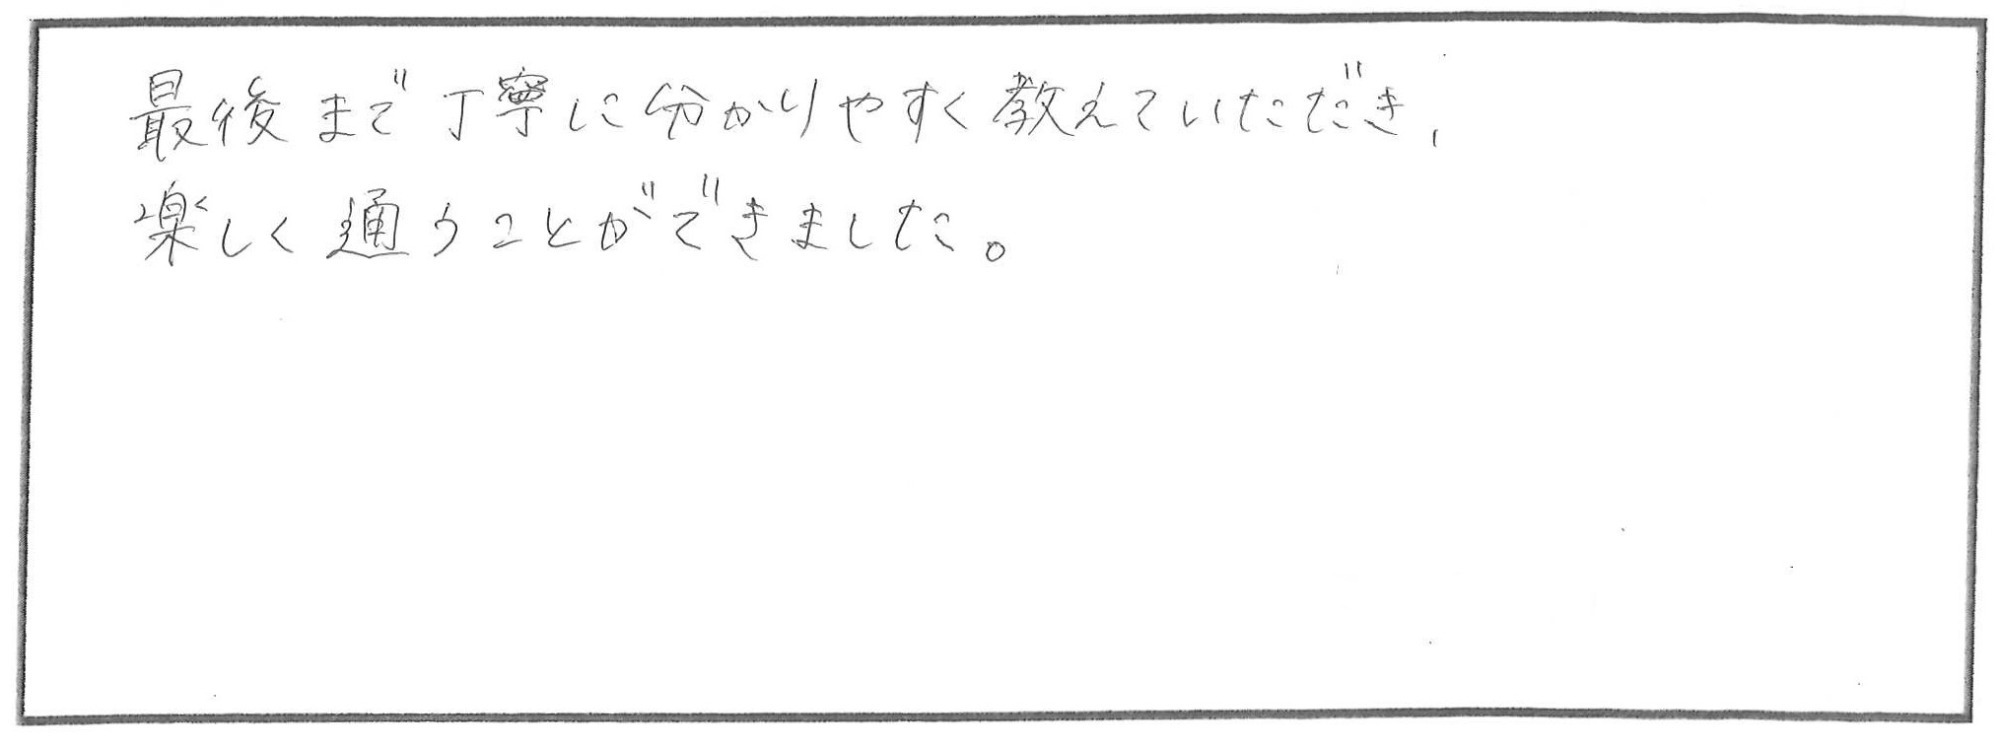 最後まで丁寧に分かりやすく教えていただき、
楽しく通うことができました。